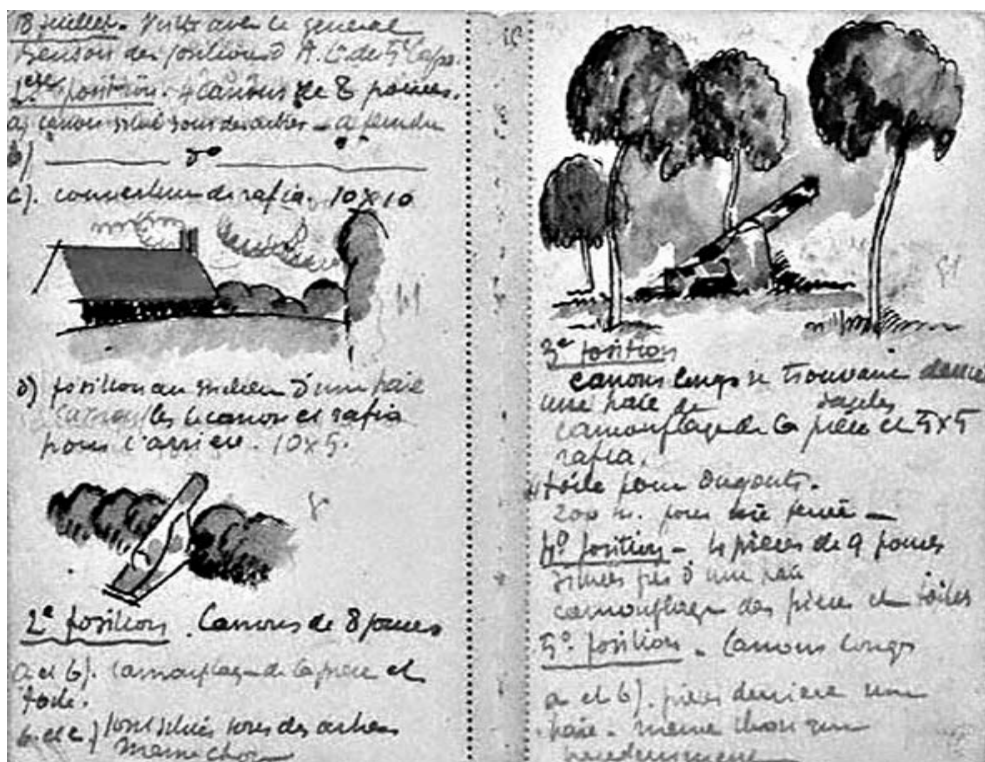 18 juillet. Visite avec le general
des positions d'A. L. de 5e Corps.
1ere position. 4 canons de 8 pouces.
a) canon situé sous des arbres - a peindre
b) do
c). couverture de rafia. 10 x 10
d) position au milieu d'une haie
les canon et rafia
pour l'arriere. 10 x 5.
2e position. Canons de 8 pouces
a et b). camouflage de la piece et
toile.
b. et c) sont situés sous des arbres
meme chose
3e position
canons longs se trouvant derriere
une haie de
camouflage de la piece et 5 x 5
rafia.
toile pour
200 m. pour
4e position - 4 pieces de 9 pouces
situees pres d'une haie
camouflage des pieces et toiles
5e position - Canons longs
a et b). pieces derriere une
haie - meme chose que
precedemment